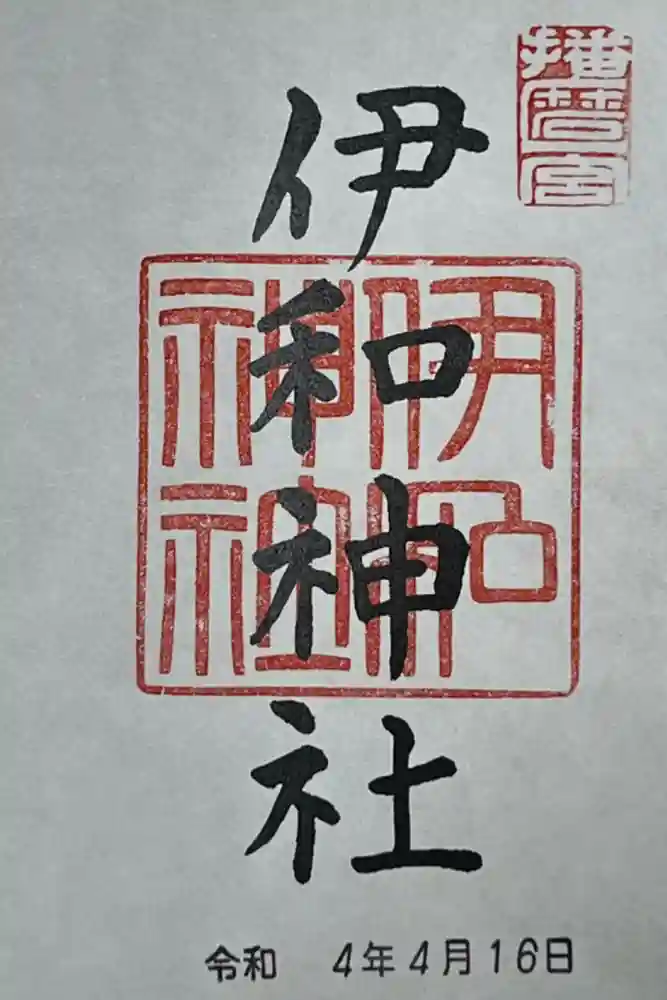 播磨宮
伊和神社
伊和
神社
令和 4年4月16日